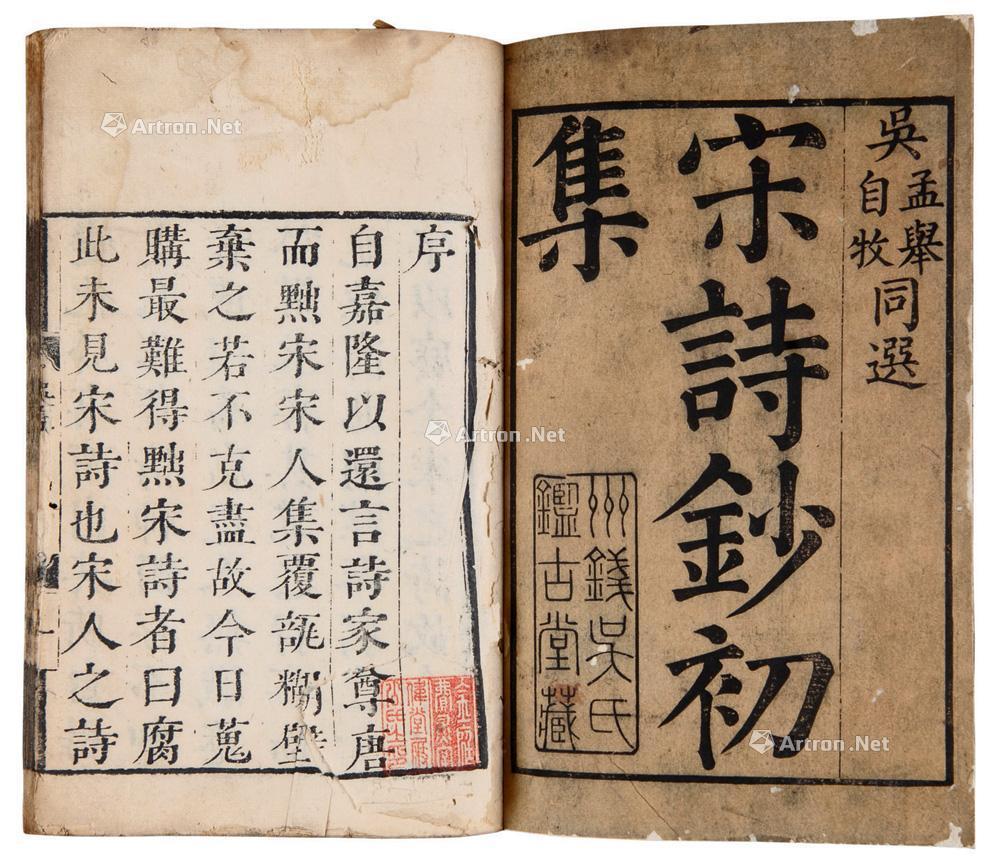 吳孟舉自牧同選
宋詩鈔初
集
州錢吳氏
鑑古堂藏
序
自嘉隆以還言詩家尊唐
而黜宋宋人集覆瓿糊壁
棄之若不克盡故今日蒐
購最難得黜宋詩者曰腐
此未見宋詩也宋人之詩
Artron.Net
Artron.Net
Artron.Net